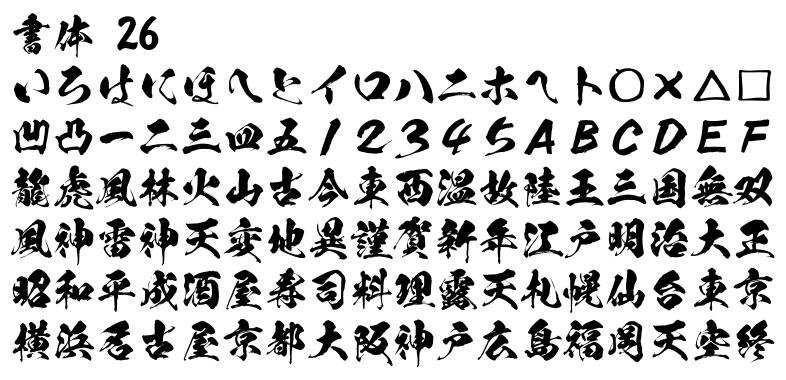 書体 26
いろはにほへとイロハニホヘト○×△□
凹凸一二三四五12345ABCDEF
龍虎風林火山古今東西温故陸王三国無双
風神雷神天変地異謹賀新年江戸明治大正
昭和平成酒屋寿司料理露天札幌仙台東京
横浜名古屋京都大阪神戸広島福岡天空終